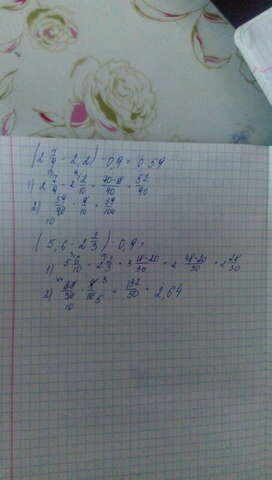 (2 7/9 - 2,2) · 0,9 = 0,59
1) 2 7/9 - 2 2/10 = 70-8/90 = 52/90
2) 59/90 · 9/10 = 59/100
10
(5,6 - 2 2/3) · 0,9 =
1) 5 6/10 - 2 2/3 = 3 18-20/30 = 2 48-20/30 = 2 28/30
2) 88/30 · 9/10 = 132/50 = 2,64
10